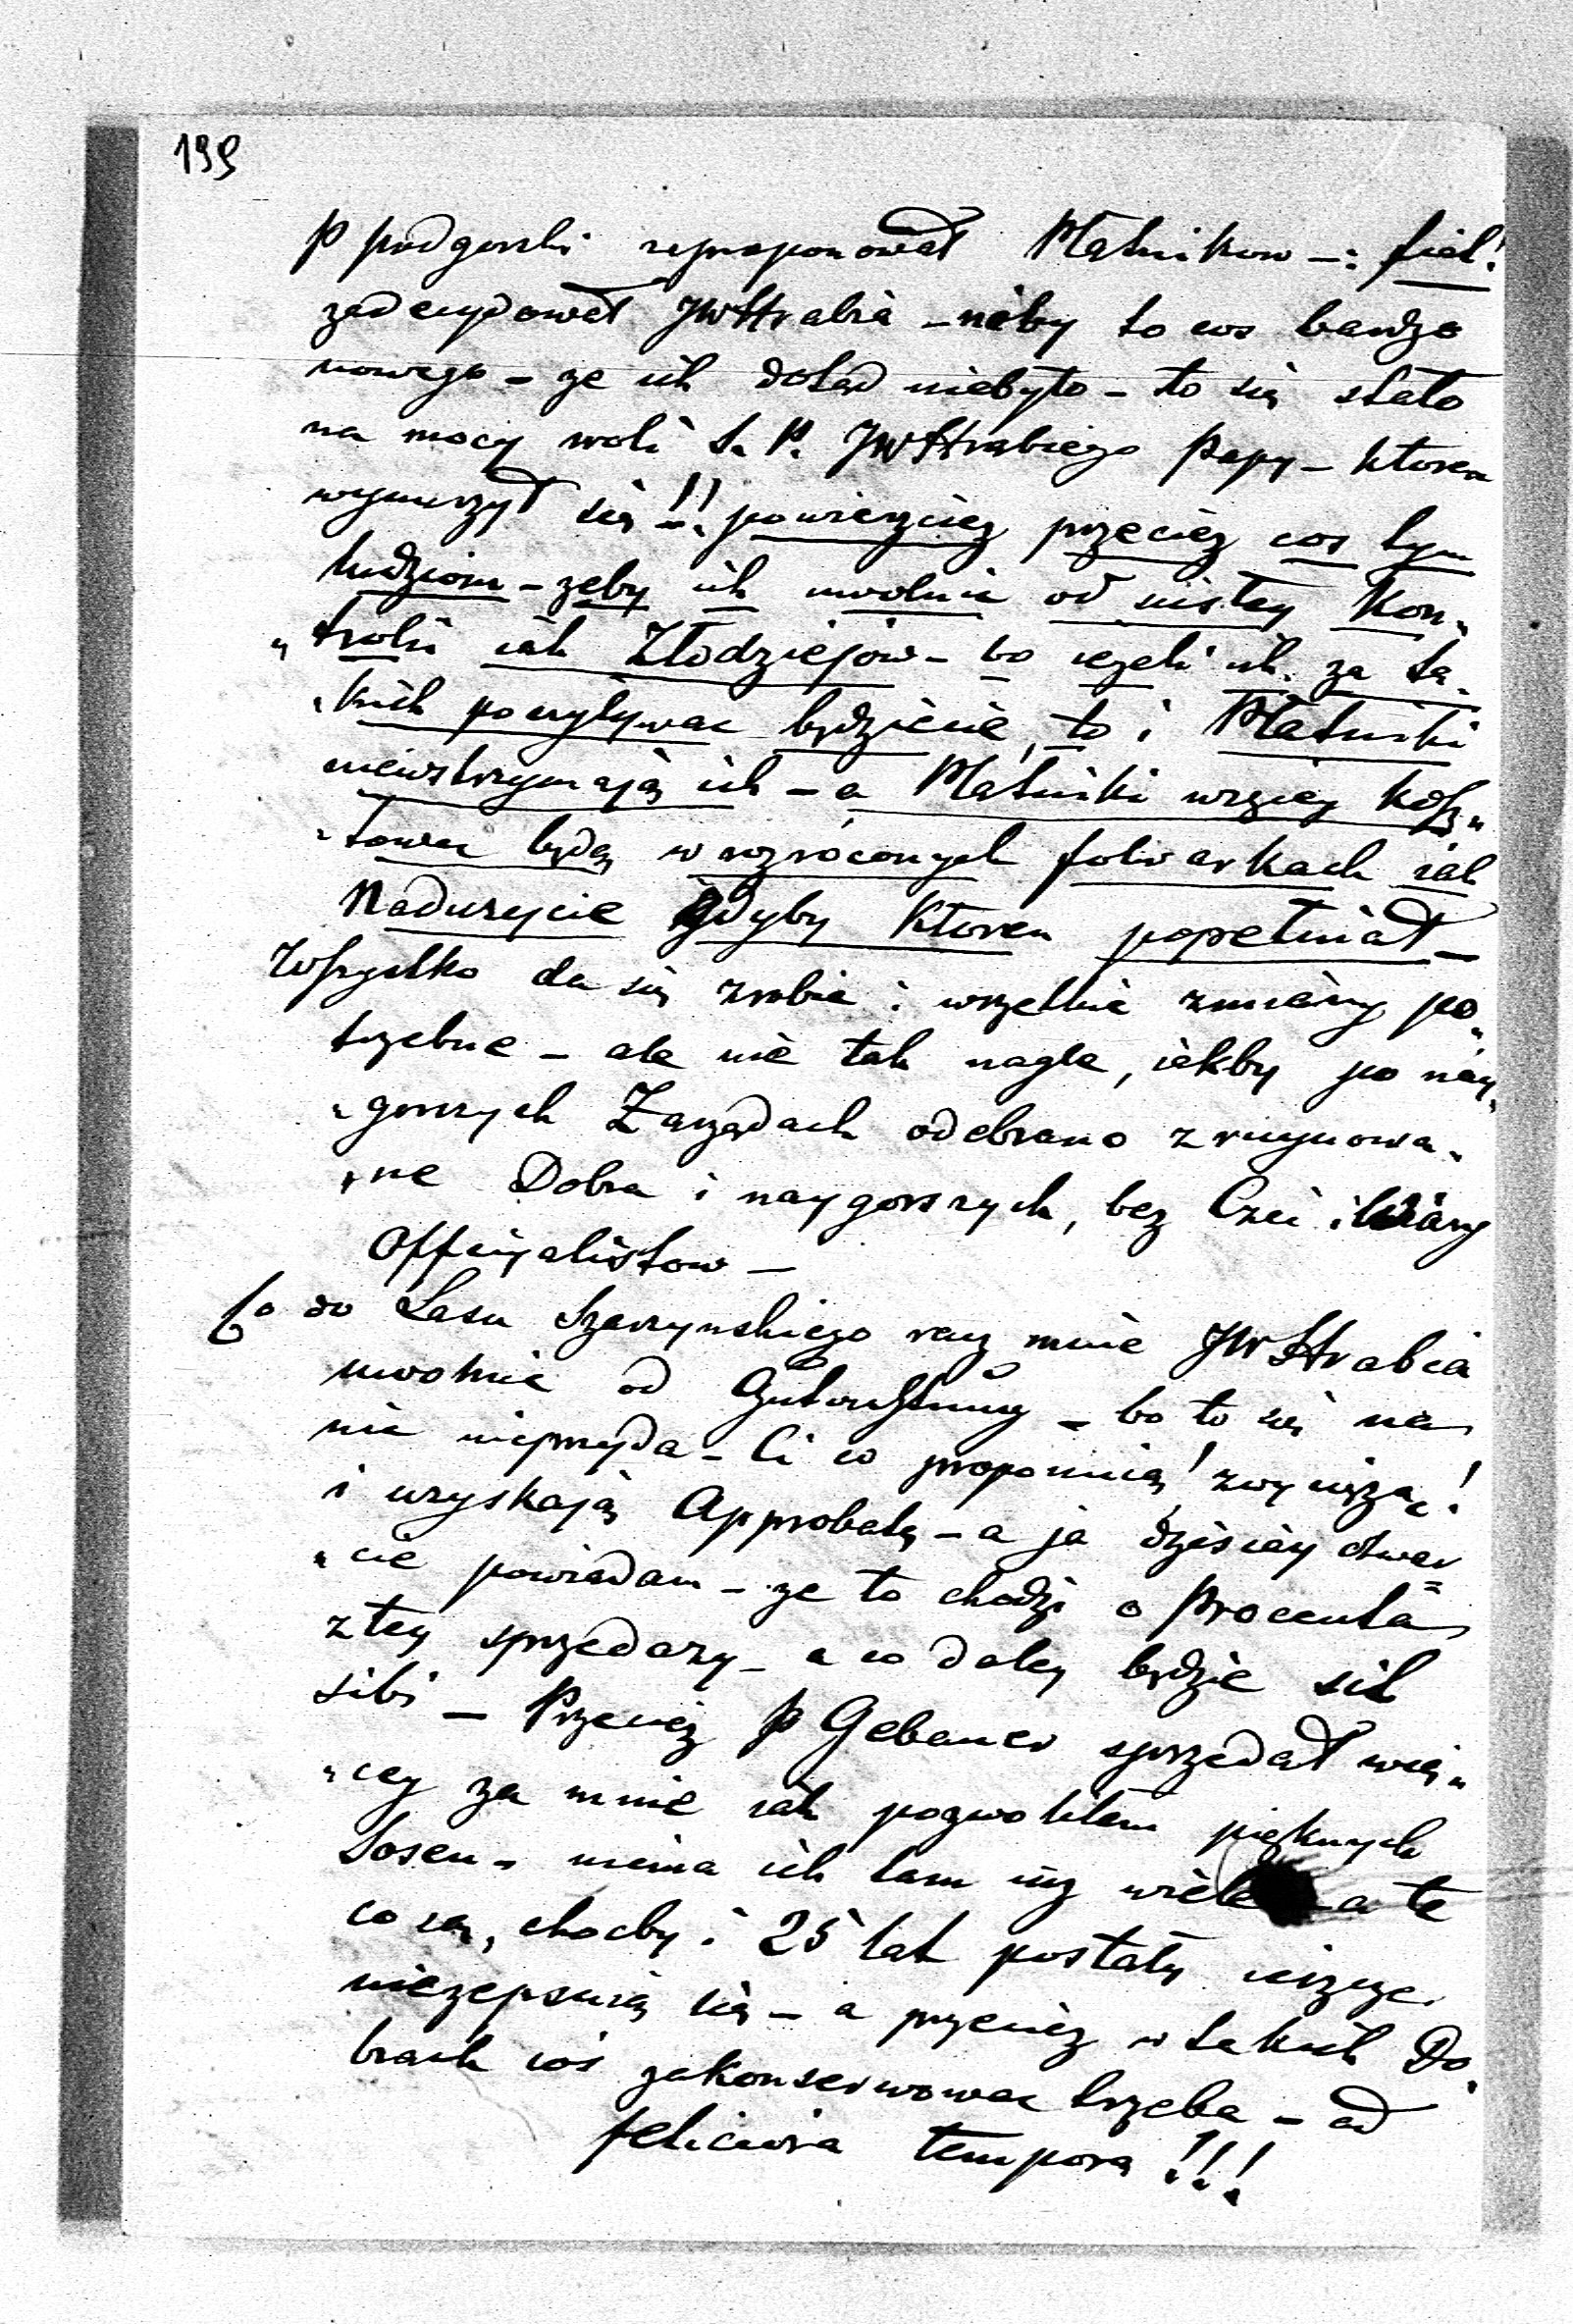 199
P podgorski zaproponował Płatnikow -: fiat!
zadecydował JWHrabia - niby to cos bardzo
nowego - ze ich dotąd niebyło - to się stało
na mocy woli S. P. JWHrabiego Papy - ktoren
wynurzył się !! powierzciez przeciez cos tym
ludziom - zeby ich uwolnić od scisłey Kon„
„troli iak Złodziejow - bo iezeli ich za ta„
„kich poczytywac będziecie, to i Płatniki
niewstrzymaią ich - a Płatniki więcey kosz„
„towac będą w rozroconych folwarkach iak
Naduzycie gdyby ktoren popełniał -
Wszystko da się zrobic i wszelkie zmiany po„
trzebne - ale nie tak nagle, iakby po nay„
„gorszych Zarządach odebrano zruynowa„
„ne Dobra i naygorszych, bez Czci i Wiary
Officyalistow -
Co do Lasu Szerzynskiego racz mnie JWHrabia
uwolnic od - bo to się na
nic nieprzyda - Ci co proponuią zwyciężą!
i uzyskają Approbatę - a ja dzisiay otwar=
„cie powiadam - ze to chodzi o Procenta
z tey sprzedazy - a co daley będzie sit
sibi - Przeciez P Gebauer sprzedał wię„
„cey za mnie iak pozwoliłem pięknych
Sosen - niema ich tam iuz wiele - a te
co są, choćby i 25 lat postały ieszcze
niezepsuią się - a przeciez w takich Do„
brach coś zakonserwowac trzeba - ad
feliciora tempora !!!